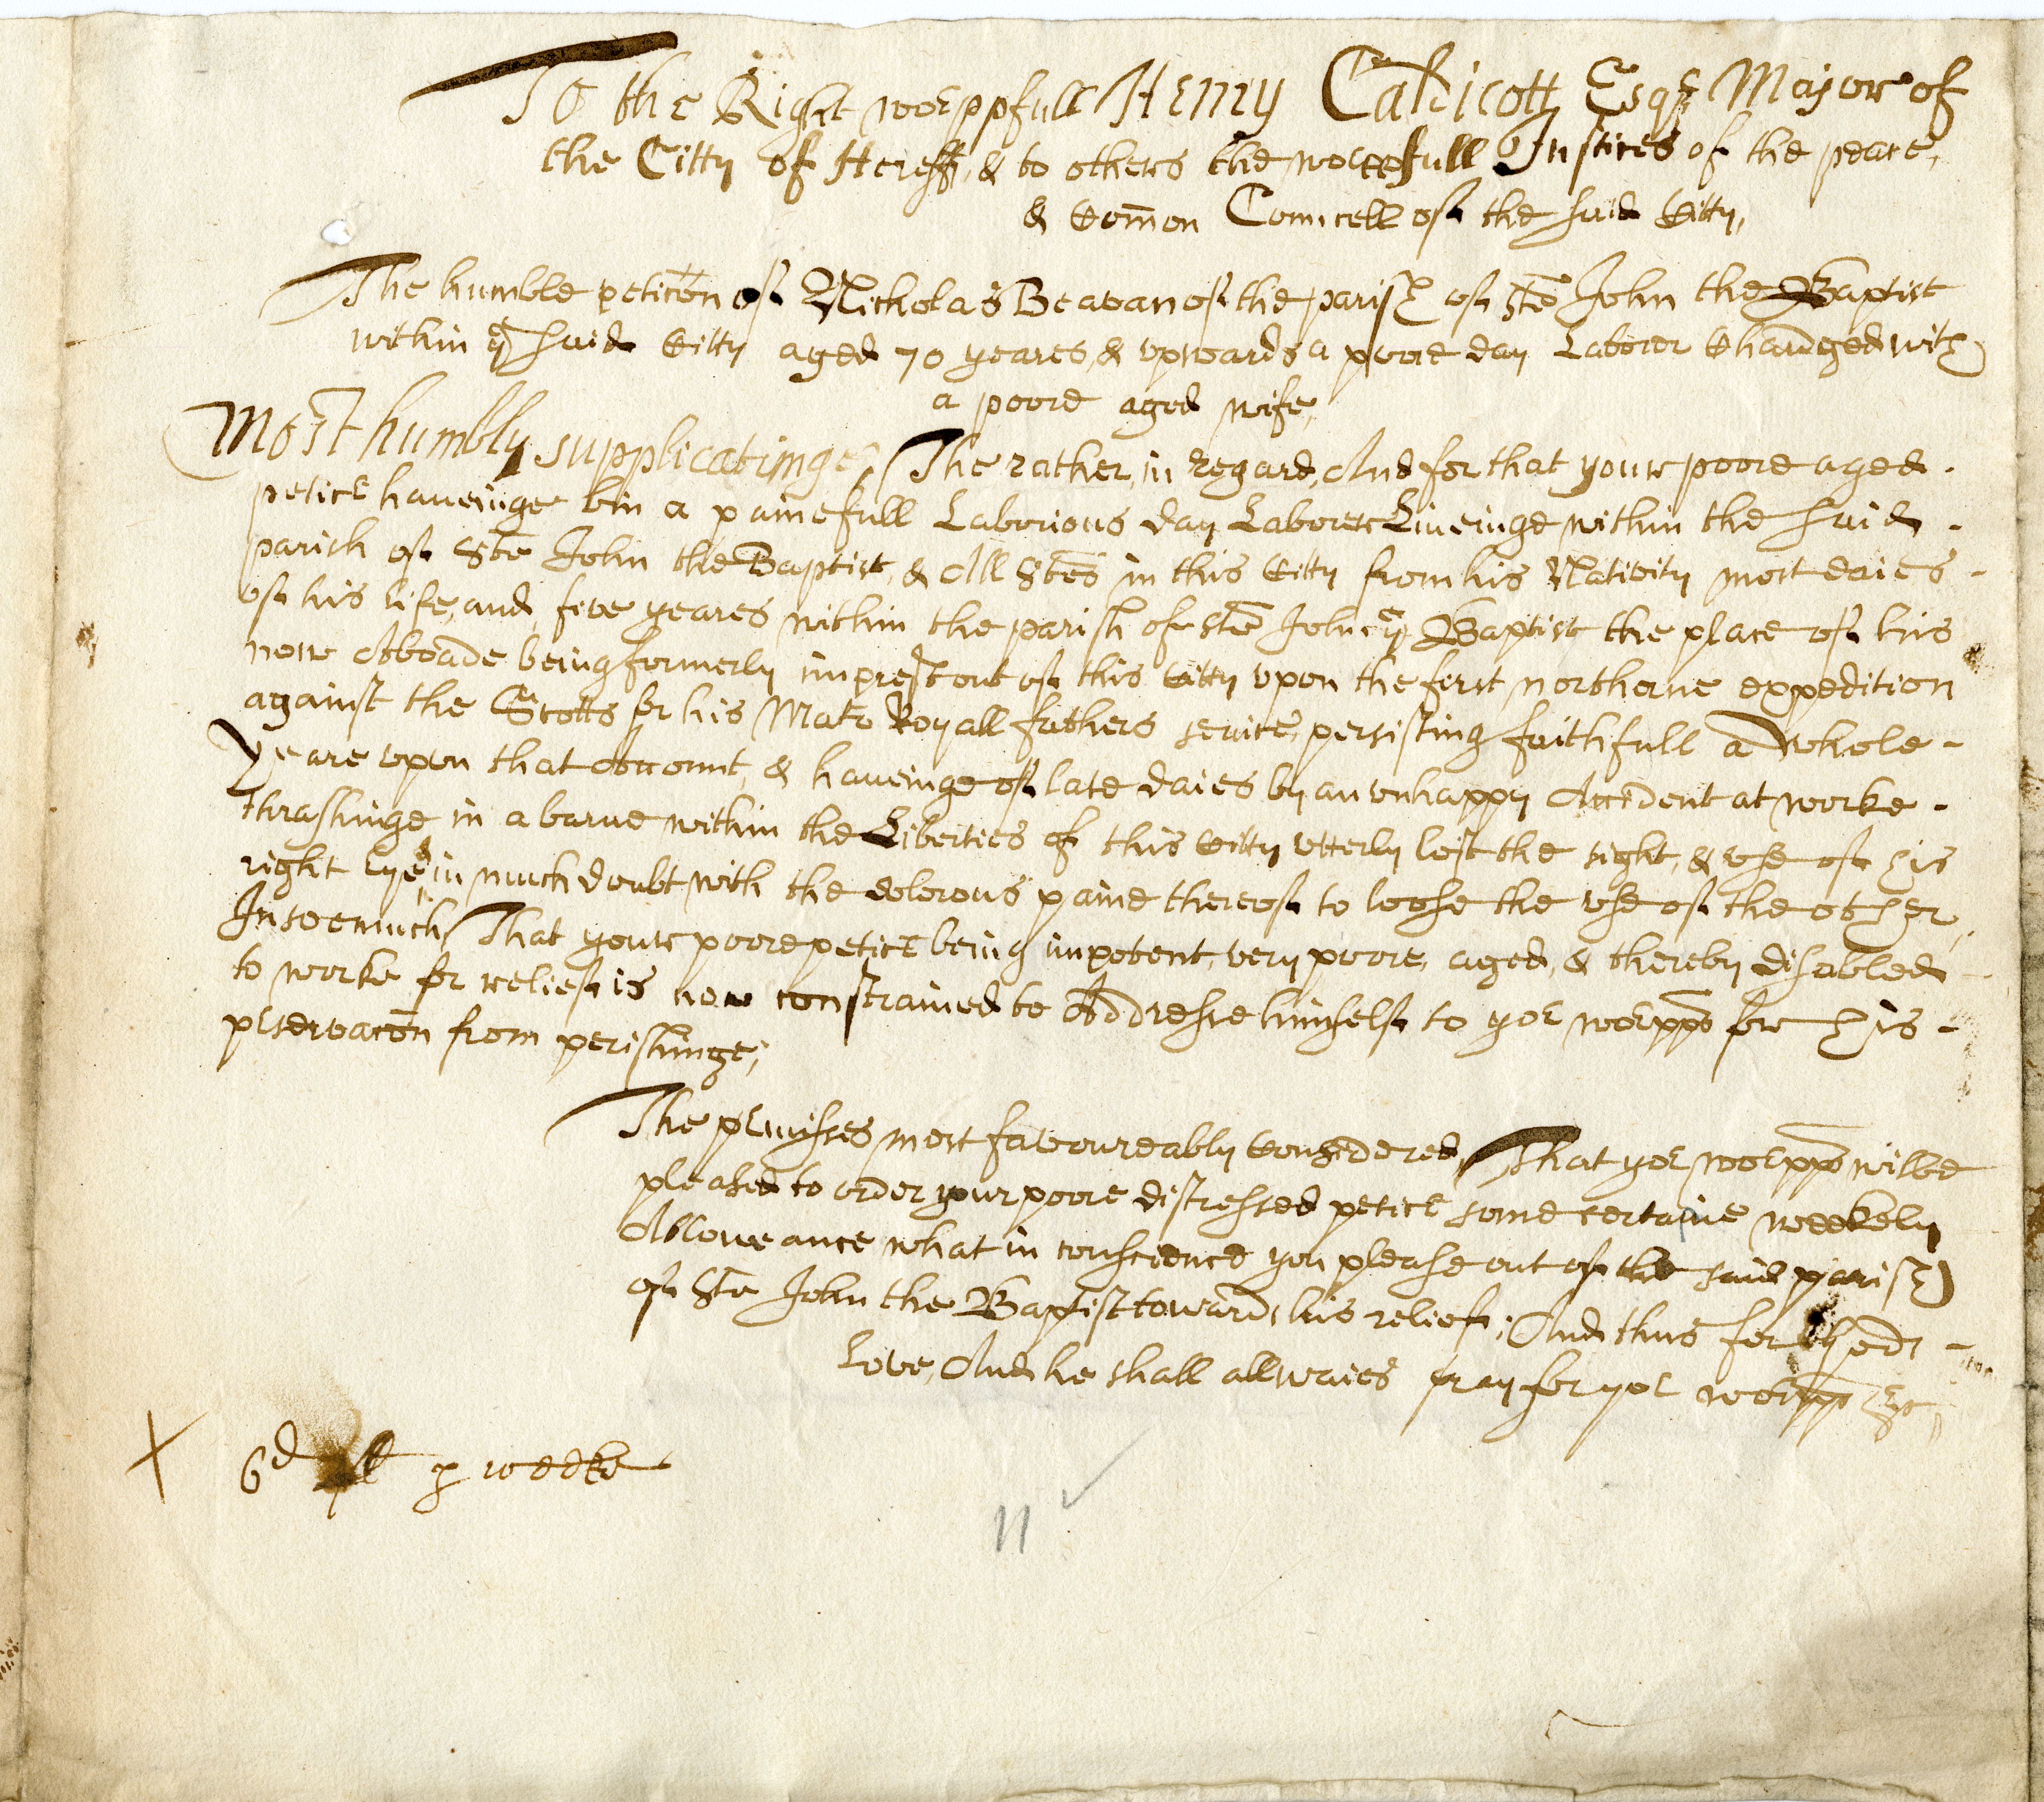 To the Right worppfull Henry Caldicott Esqr Major of
the Citty of Hereff, & to others the worppfull Justices of the peace,
& Com̄on Councell of the said Citty,
The humble peticōn of Nicholas Beavan of the parish of Ste John the Baptist
within ye said Citty aged 70 yeares, & upwards a poore day Laborer Chardged with
a poore aged wife,
Most humbly supplicatinge, The rather, in regard, And for that your poore aged -
peticr haveinge bin a painefull Laborious day Laborer Liveinge within the said -
parish of Ste John the Baptist, & All Stes in this Citty from his Nativity most daies -
of his life, and five yeares within the parish of Ste John ye Baptist the place of his
now Aboade being formerly imprest out of this Citty upon the first northerne expedition
against the Scotts for his Mats Royall fathers service, persisting faithfull a whole -
yeare upon that Account, & haveinge of late daies by an unhappy Accident at worke -
thrashinge in a barne within the Liberties of this Citty utterly lost the sight, & use of his
right eye, & in much doubt with the dolorous paine thereof to loose the use of the other,
Insoemuch That your poore peticr being impotent, very poore, aged, & thereby disabled -
to worke for reliefe is now constrained to Addresse himselfe to yor worpps for his -
prservacōn from perishinge;
The prmisses most favoureably Considered, That yor worpps wilbe
pleased to order your poore distressed peticr some certaine weekely
Alloweance what in conscience you please out of the said parish
of Ste John the Baptist towards his reliefe; And this for gods -
Love, And he shall allwaies pray for yor worpps &c,
X 6d p weeke
11 ✓